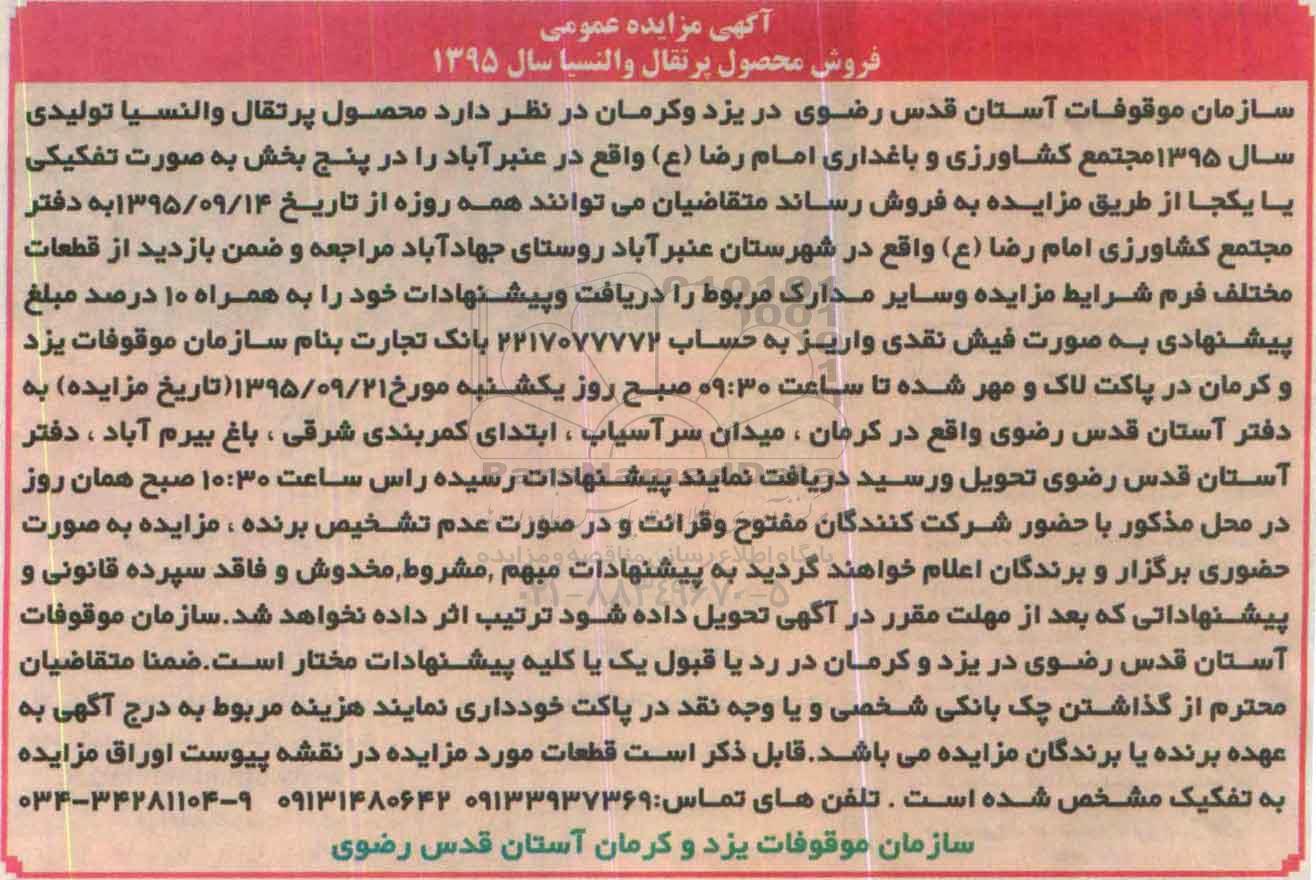 آگهی مزایده عمومی
فروش محصول پرتقال والنسیا سال ۱۳۹۵
سازمان موقوفات آستان قدس رضوی در یزد وکرمان در نظر دارد محصول پرتقال والنسیا تولیدی
سال ۱۳۹۵مجتمع کشاورزی و باغداری امام رضا (ع) واقع در عنبرآباد را در پنج بخش به صورت تفکیکی
یا یکجا از طریق مزایده به فروش رساند متقاضیان می توانند همه روزه از تاریخ ۱۳۹۵/۰۹/۱۴به دفتر
مجتمع کشاورزی امام رضا (ع) واقع در شهرستان عنبرآباد روستای جهادآباد مراجعه و ضمن بازدید از قطعات
مختلف فرم شرایط مزایده وسایر مدارک مربوط را دریافت وپیشنهادات خود را به همراه ۱۰ درصد مبلغ
پیشنهادی به صورت فیش نقدی واریز به حساب ۲۲۱۷۰۷۷۷۷۲ بانک تجارت بنام سازمان موقوفات یزد
و کرمان در پاکت لاک و مهر شده تا ساعت ۰۹:۳۰ صبح روز یکشنبه مورخ۱۳۹۵/۰۹/۲۱(تاریخ مزایده) به
دفتر آستان قدس رضوی واقع در کرمان ، میدان سرآسیاب ، ابتدای کمربندی شرقی ، باغ بیرم آباد ، دفتر
آستان قدس رضوی تحویل ورسید دریافت نمایند پیشنهادات رسیده راس ساعت ۱۰:۳۰ صبح همان روز
در محل مذکور با حضور شرکت کنندگان مفتوح وقرائت و در صورت عدم تشخیص برنده ، مزایده به صورت
حضوری برگزار و برندگان اعلام خواهند گردید به پیشنهادات مبهم ,مشروط,مخدوش و فاقد سپرده قانونی و
پیشنهاداتی که بعد از مهلت مقرر در آگهی تحویل داده شود ترتیب اثر داده نخواهد شد.سازمان موقوفات
آستان قدس رضوی در یزد و کرمان در رد یا قبول یک یا کلیه پیشنهادات مختار است.ضمنا متقاضیان
محترم از گذاشتن چک بانکی شخصی و یا وجه نقد در پاکت خودداری نمایند هزینه مربوط به درج آگهی به
عهده برنده یا برندگان مزایده می باشد.قابل ذکر است قطعات مورد مزایده در نقشه پیوست اوراق مزایده
به تفکیک مشخص شده است . تلفن های تماس:۰۹۱۳۳۹۳۷۳۶۹ ۰۹۱۳۱۴۸۰۶۴۲ ۰۳۴-۳۴۲۸۱۱۰۴-۹
سازمان موقوفات یزد و کرمان آستان قدس رضوی
ParsNamadData
پایگاه اطلاع رسانی مناقصه و مزایده
۰۲۱-۸۸۳۴۹۶۷۰-۵